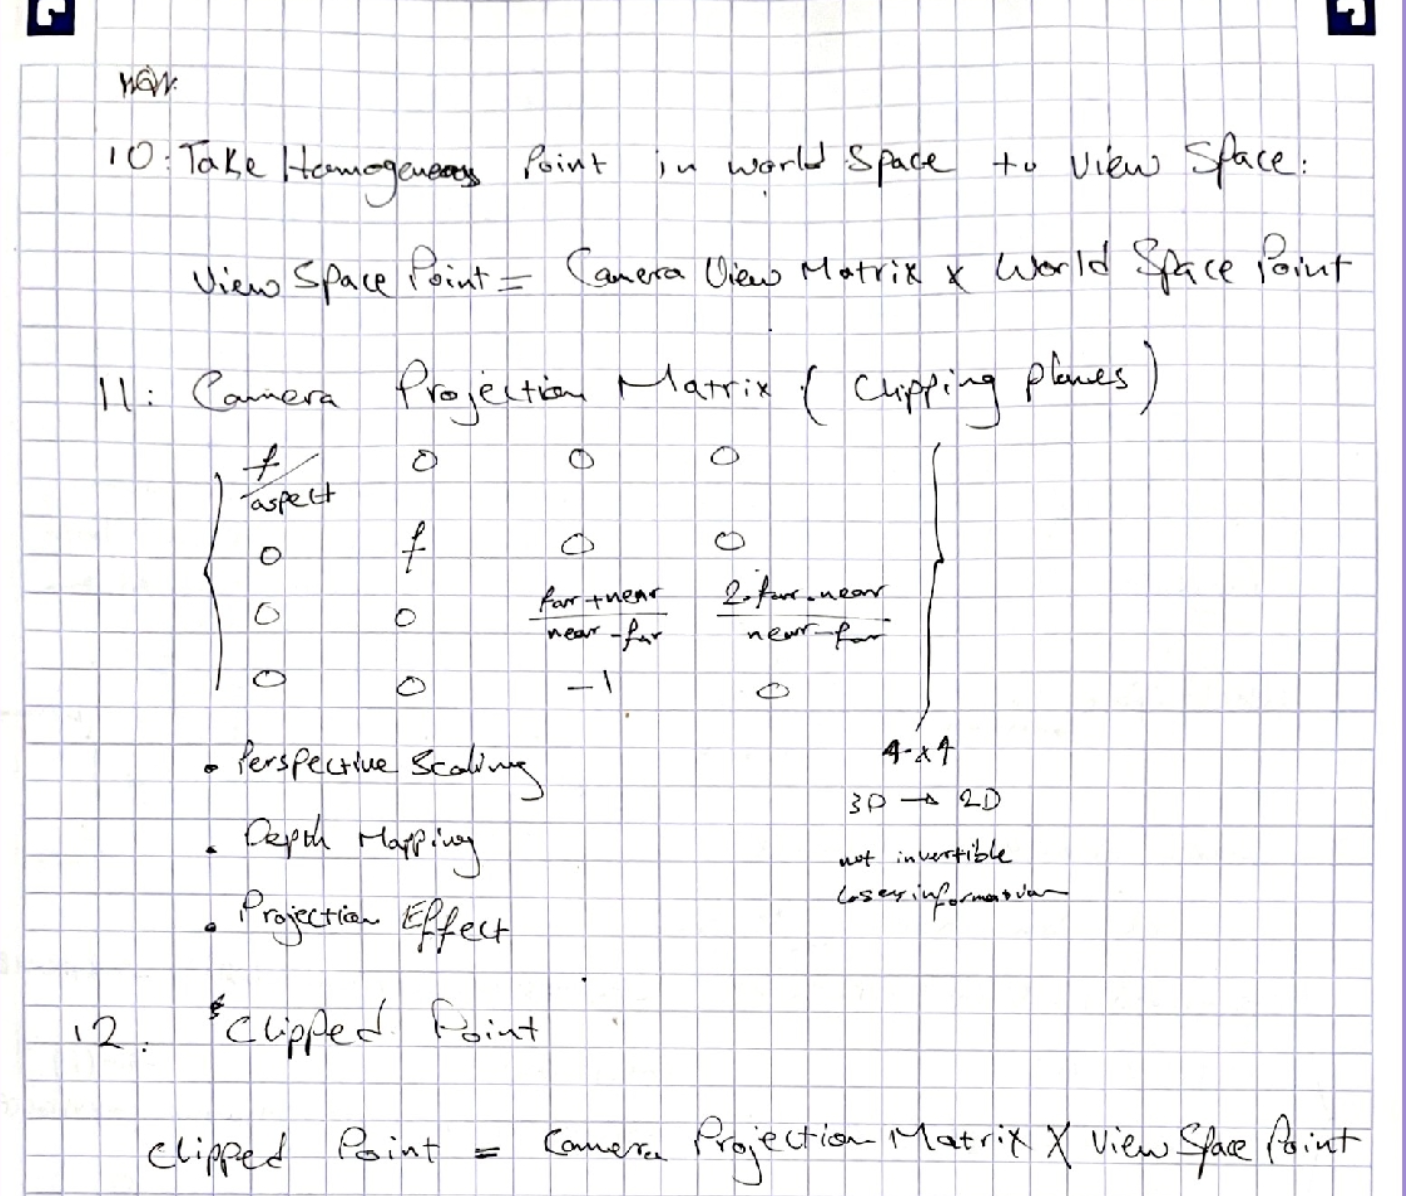 10: Take Homogeneous Point in world Space to View Space:
View Space Point = Camera View Matrix x World Space Point
11: Camera Projection Matrix ( Clipping planes )
f/aspect 0 0 0
0 f 0 0
0 0 far+near/near-far 2.far.near/near-far
0 0 -1 0
4x4
• Perspective Scaling
3D → 2D
• Depth Mapping
not invertible
loses information
• Projection Effect
12. Clipped Point
Clipped Point = Camera Projection Matrix X View Space Point